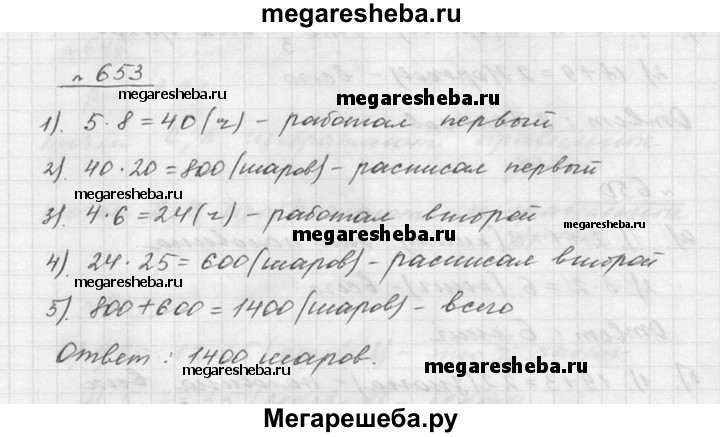 megaresheba.ru
№ 653
megaresheba.ru
megaresheba.ru
1). 5·8=40(ч) - работал первый
2). 40·20=800(шаров) - расписал первый
3). 4·6=24(ч) - работал второй
megaresheba.ru
megaresheba.ru
4). 24·25=600(шаров) - расписал второй
5). 800+600=1400(шаров) - всего
Ответ: 1400 шаров.
megaresheba.ru
megaresheba.ru
Мегарешеба.ру